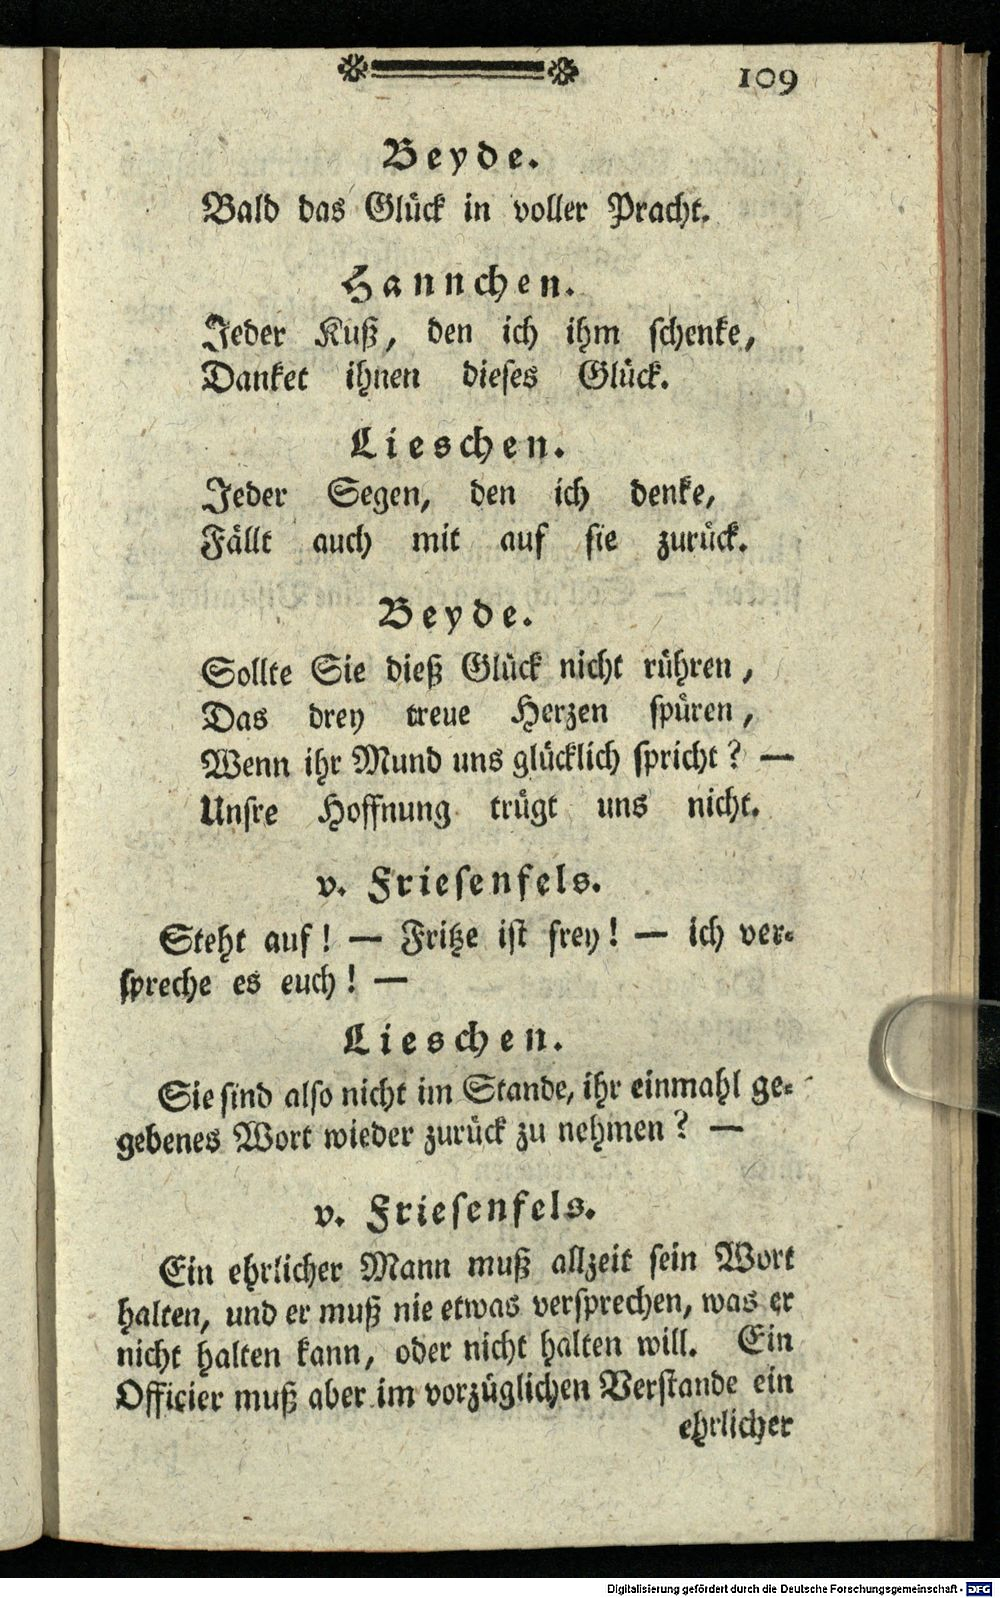 109
Beyde.
Bald das Glück in voller Pracht.
Hannchen.
Jeder Kuß, den ich ihm schenke,
Danket ihnen dieses Glück.
Lieschen.
Jeder Segen, den ich denke,
Fällt auch mit auf sie zurück.
Beyde.
Sollte Sie dieß Glück nicht rühren,
Das drey treue Herzen spüren,
Wenn ihr Mund uns glücklich spricht? —
Unsre Hoffnung trügt uns nicht.
v. Friesenfels.
Steht auf! — Fritze ist frey! — ich ver-
spreche es euch! —
Lieschen.
Sie sind also nicht im Stande, ihr einmahl ge-
gebenes Wort wieder zurück zu nehmen? —
v. Friesenfels.
Ein ehrlicher Mann muß allzeit sein Wort
halten, und er muß nie etwas versprechen, was er
nicht halten kann, oder nicht halten will. Ein
Officier muß aber im vorzüglichen Verstande ein
ehrlicher
Digitalisierung gefördert durch die Deutsche Forschungsgemeinschaft - DFG